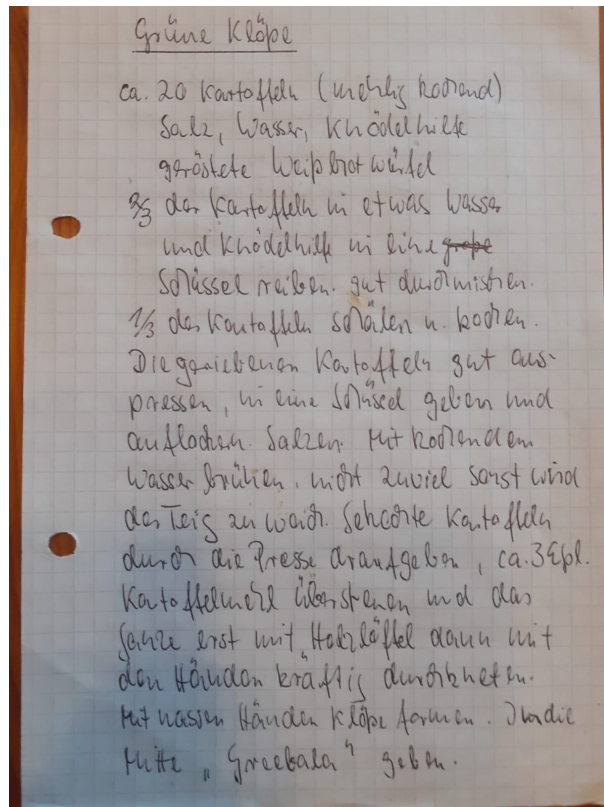 Grüne Klöße
ca. 20 Kartoffeln (mehlig kochend)
Salz, Wasser, Knödelhilfe
geröstete Weißbrotwürfel
2/3 der Kartoffeln in etwas Wasser
und Knödelhilfe in eine große
Schüssel reiben. gut durchmischen.
1/3 der Kartoffeln schälen u. kochen.
Die geriebenen Kartoffeln gut aus-
pressen, in eine Schüssel geben und
auflockern. Salzen. Mit kochendem
Wasser brühen. nicht zuviel sonst wird
der Teig zu weich. Gekochte Kartoffeln
durch die Presse draufgeben, ca. 3 Eßl.
Kartoffelmehl überstreuen und das
Ganze erst mit Holzlöffel dann mit
den Händen kräftig durchkneten.
Mit nassen Händen Klöße formen. In die
Mitte „Greebala“ geben.